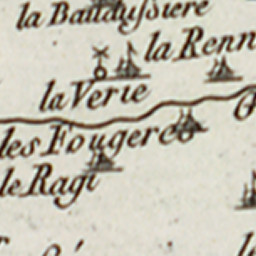 la Baudussiere
la Renn
la Verie
les Fougere
le Ragi